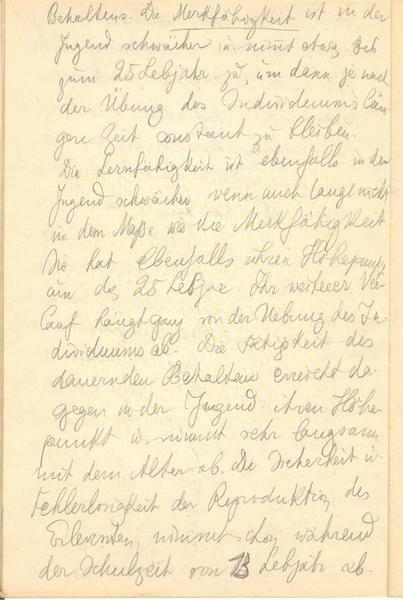 Behaltens. Die Merkfähigkeit ist in der
Jugend schwächer u. nimt etwa bis
zum 25 Lebjahr zu, um dann je nach
der Übung des Individuums län
gere Zeit constant zu bleiben.
Die Lernfähigkeit ist ebenfalls in der
Jugend schwächer wenn auch lange nicht
in dem Maße wie die Merkfähigkeit
Sie hat ebenfalls ihren Höhepunkt
um das 25 Lebja. Ihr weiterer Ver
lauf hängt ganz von der Uebung des In
dividuums ab. Die Fähigkeit des
dauernden Behalten erreicht da
gegen in der Jugend ihren Höhe
punkt u. nimmt sehr langsam
mit dem Alter ab. Die Sicherheit u
Fehlerlosigkeit der Reproduktion des
Erlernten, nimmt schon während
der Schulzeit vom 13 Lebjahr ab.